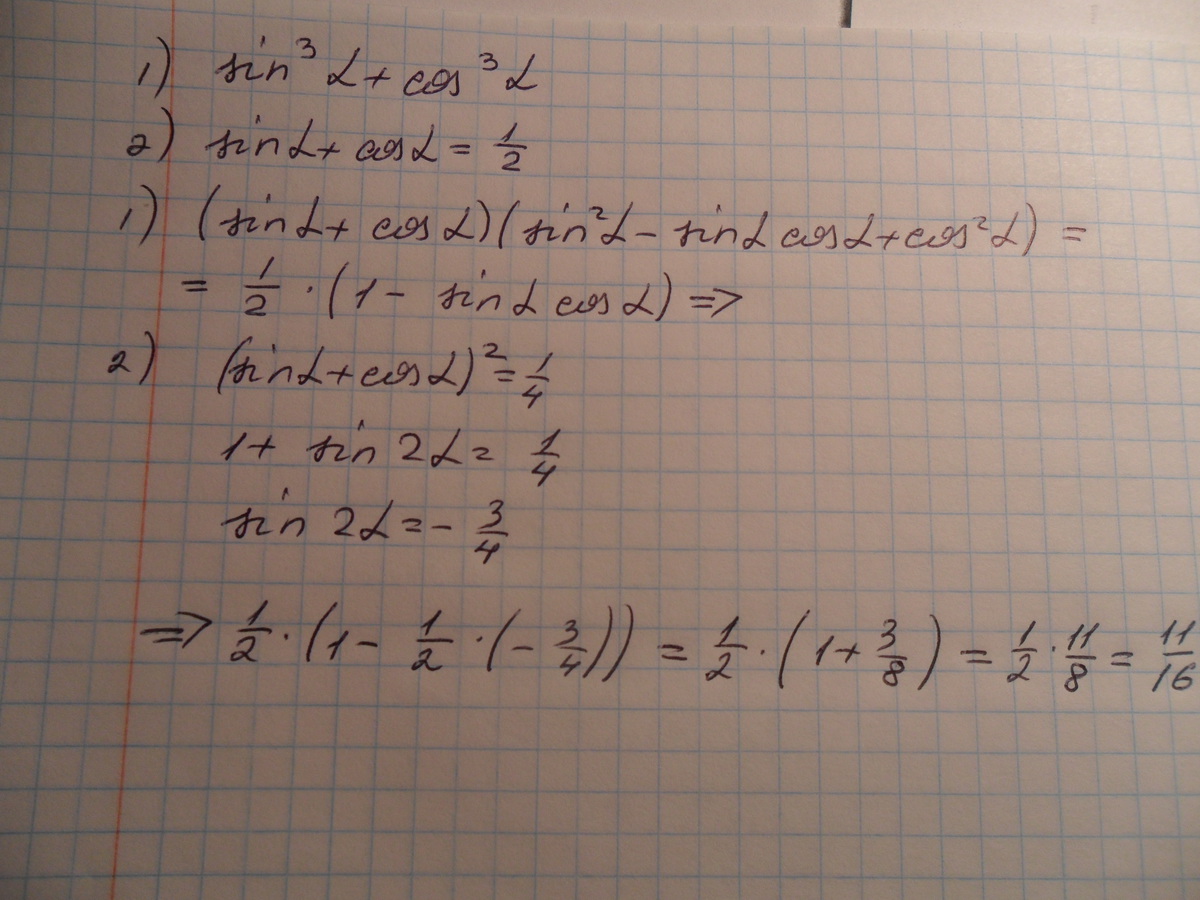 1) sin³α + cos³α
2) sinα + cosα = 1/2
1) (sinα + cosα)(sin²α - sinα cosα + cos²α) =
= 1/2 · (1 - sinα cosα) =>
2) (sinα + cosα)² = 1/4
1 + sin 2α = 1/4
sin 2α = - 3/4
=> 1/2 · (1 - 1/2 · (- 3/4)) = 1/2 · (1 + 3/8) = 1/2 · 11/8 = 11/16